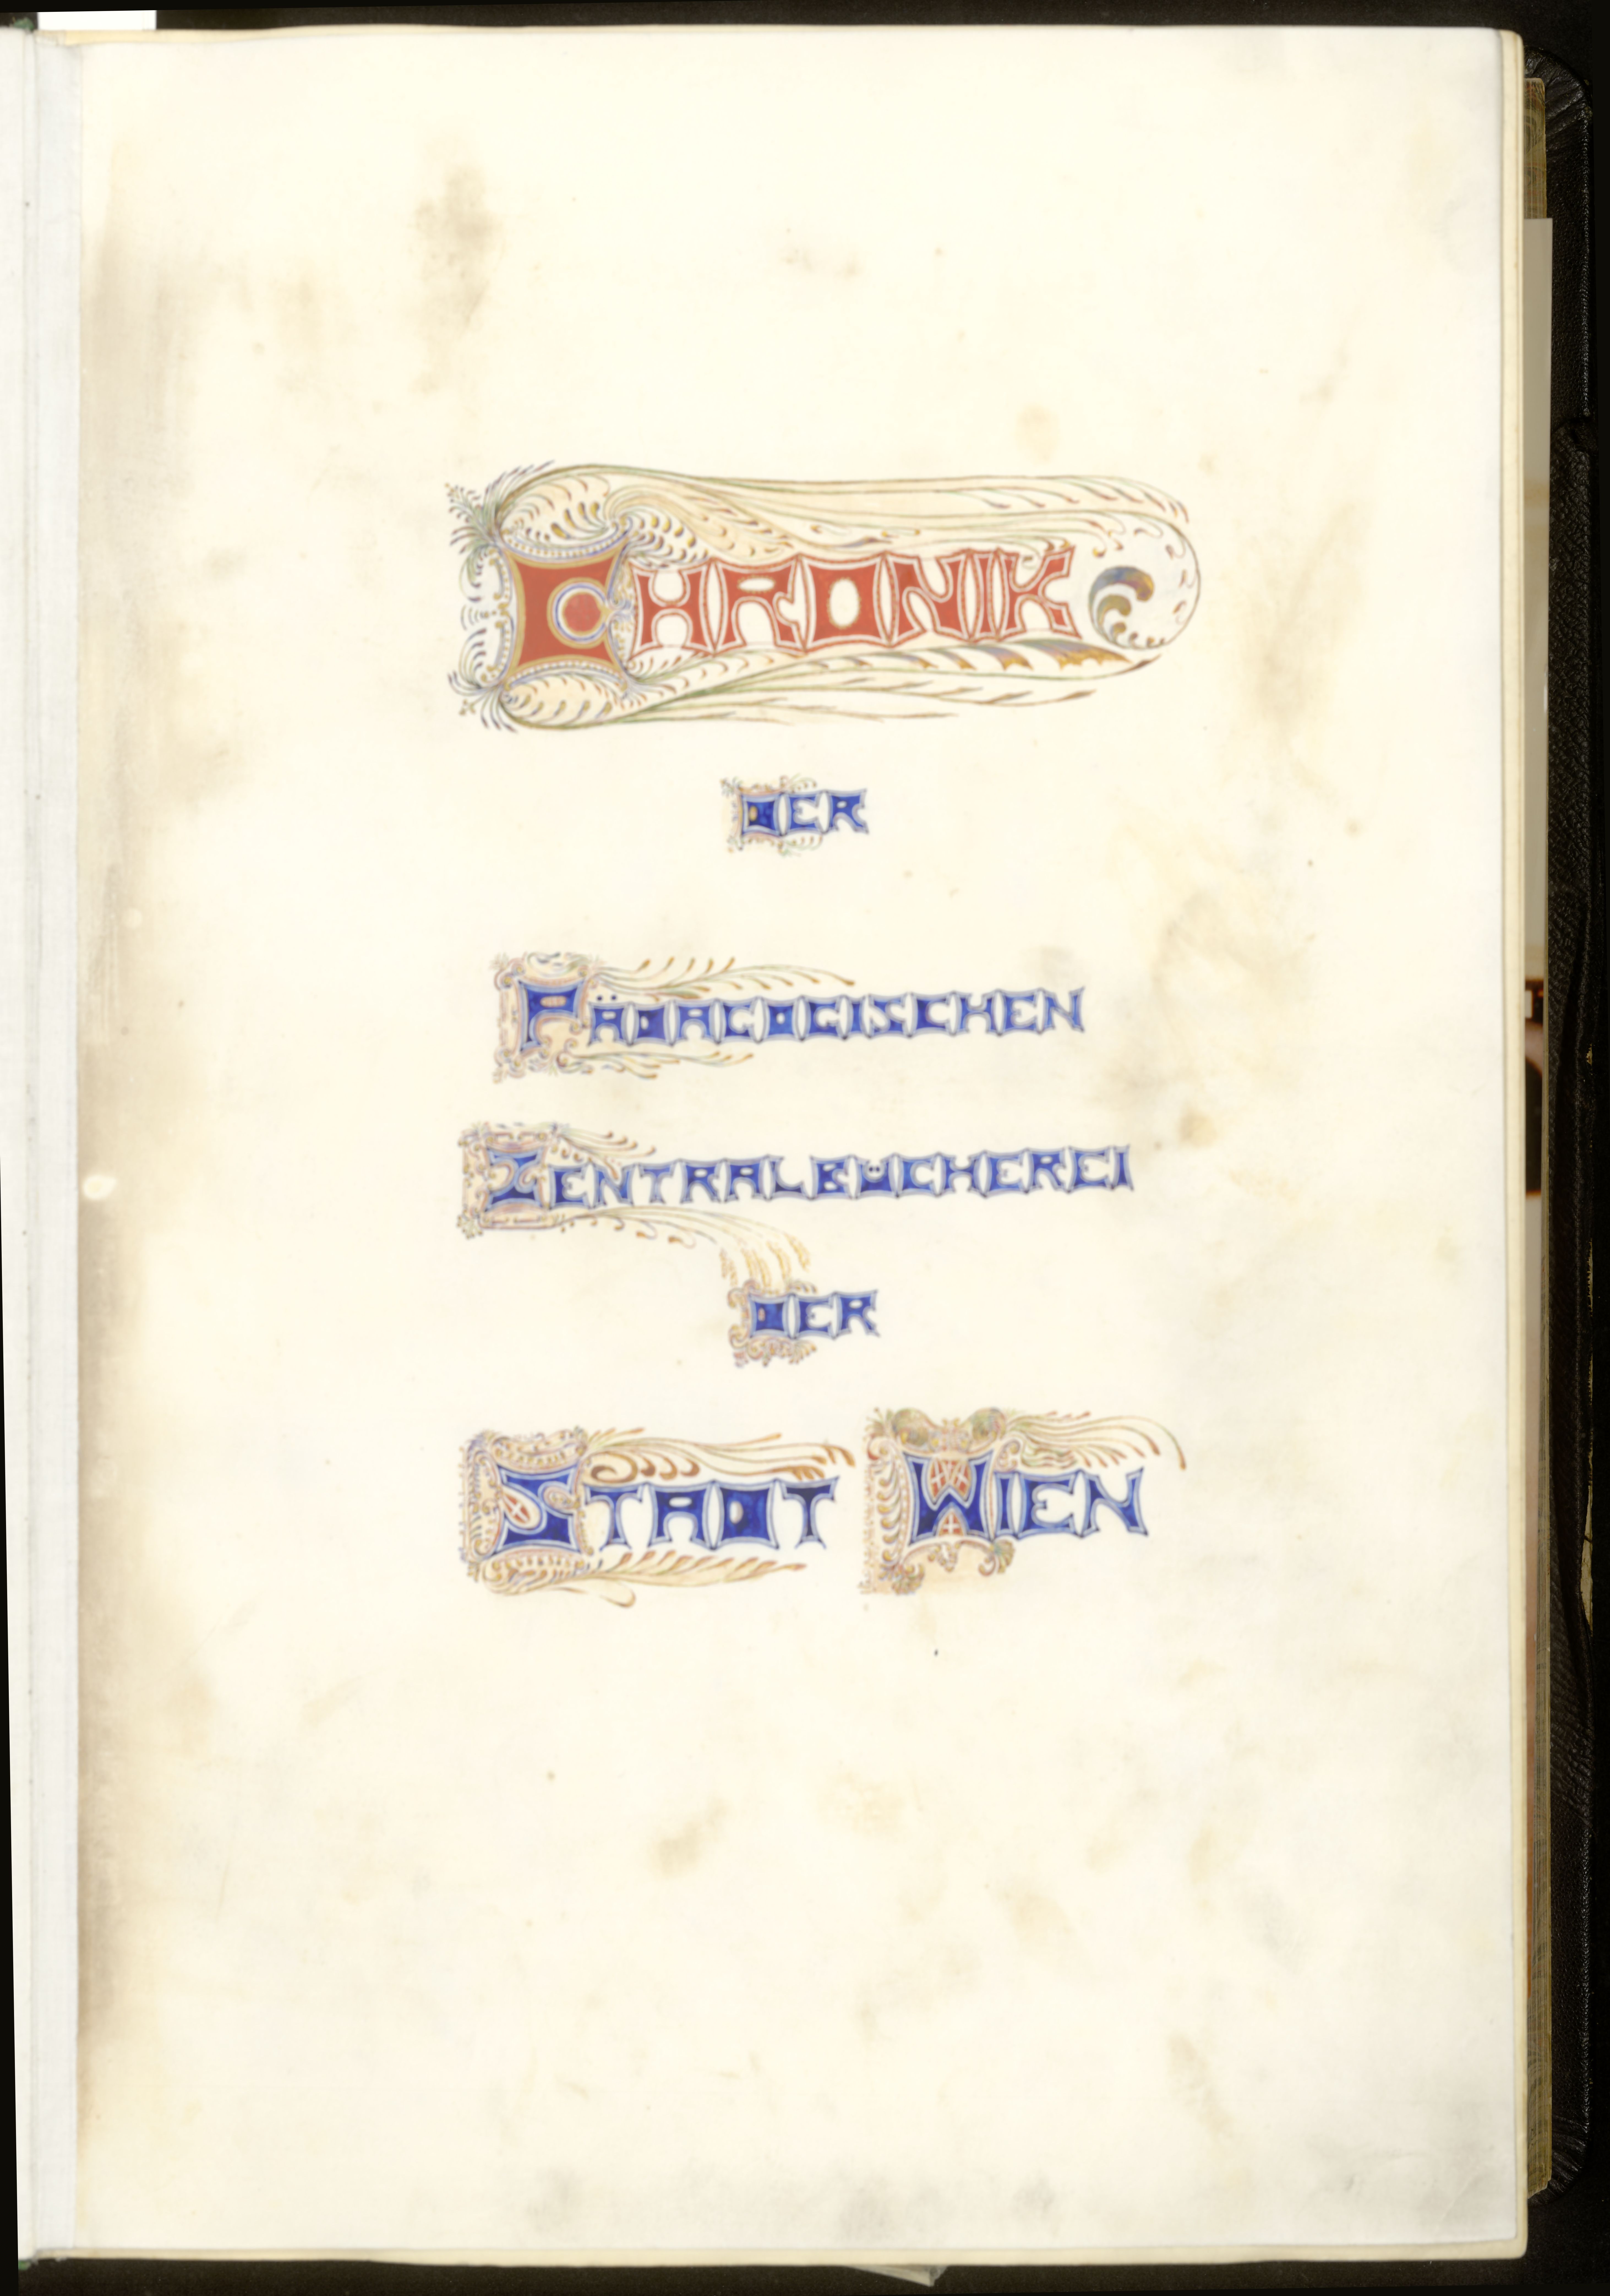 CHRONIK
DER
PÄDAGOGISCHEN
ZENTRALBÜCHEREI
DER
STADT WIEN